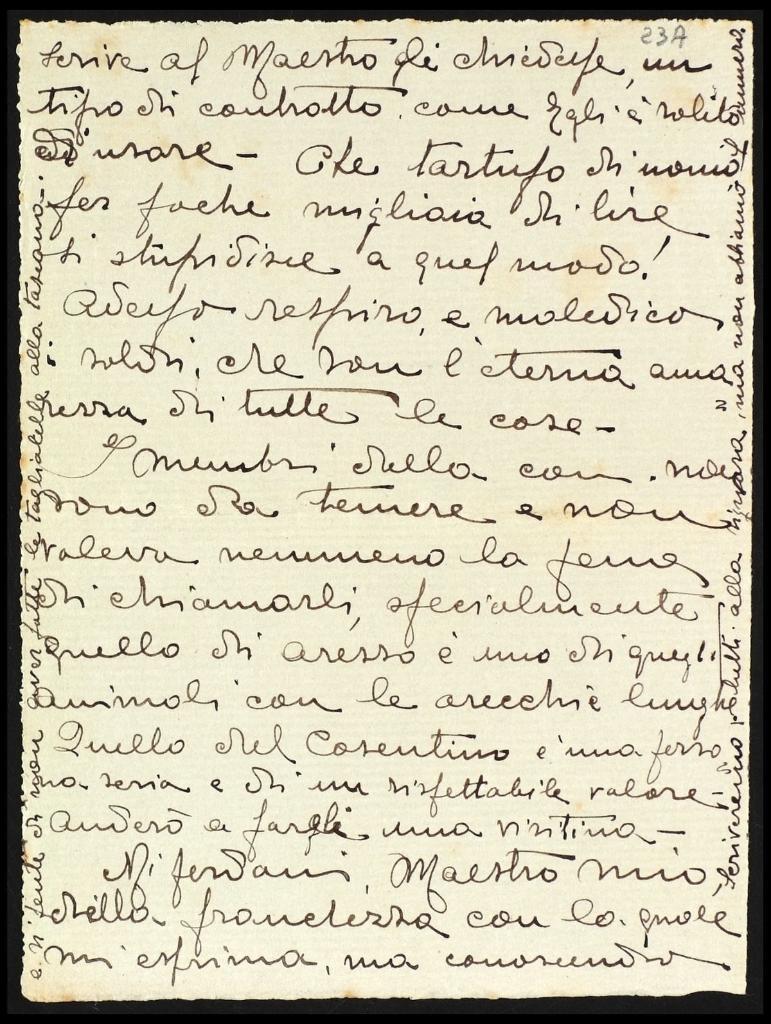 23A
scrive al Maestro di chiedere un
tipo di contratto come Egli è solito
di usare - Che tartufo di uomo
per poche migliaia di lire
si stupidisce a quel modo!
Adesso respiro, e maledico
i soldi, che son l'eterna ama
rezza di tutte le cose -
I membri della com. non
sono da temere e non
valeva nemmeno la pena
di chiamarli, specialmente
quello di Arezzo è uno di quegli
animali con le orecchie lunghe
Quello del Cosentino è una perso
na seria e di un rispettabile valore -
Anderò a fargli una visitina -
Mi perdoni, Maestro mio,
della franchezza con la quale
mi esprima, ma conoscendo
Scriveremo tutti alla signora, ma non abbiamo il numero.
e si pente di non aver fatte le tagliatelle alla toscana.